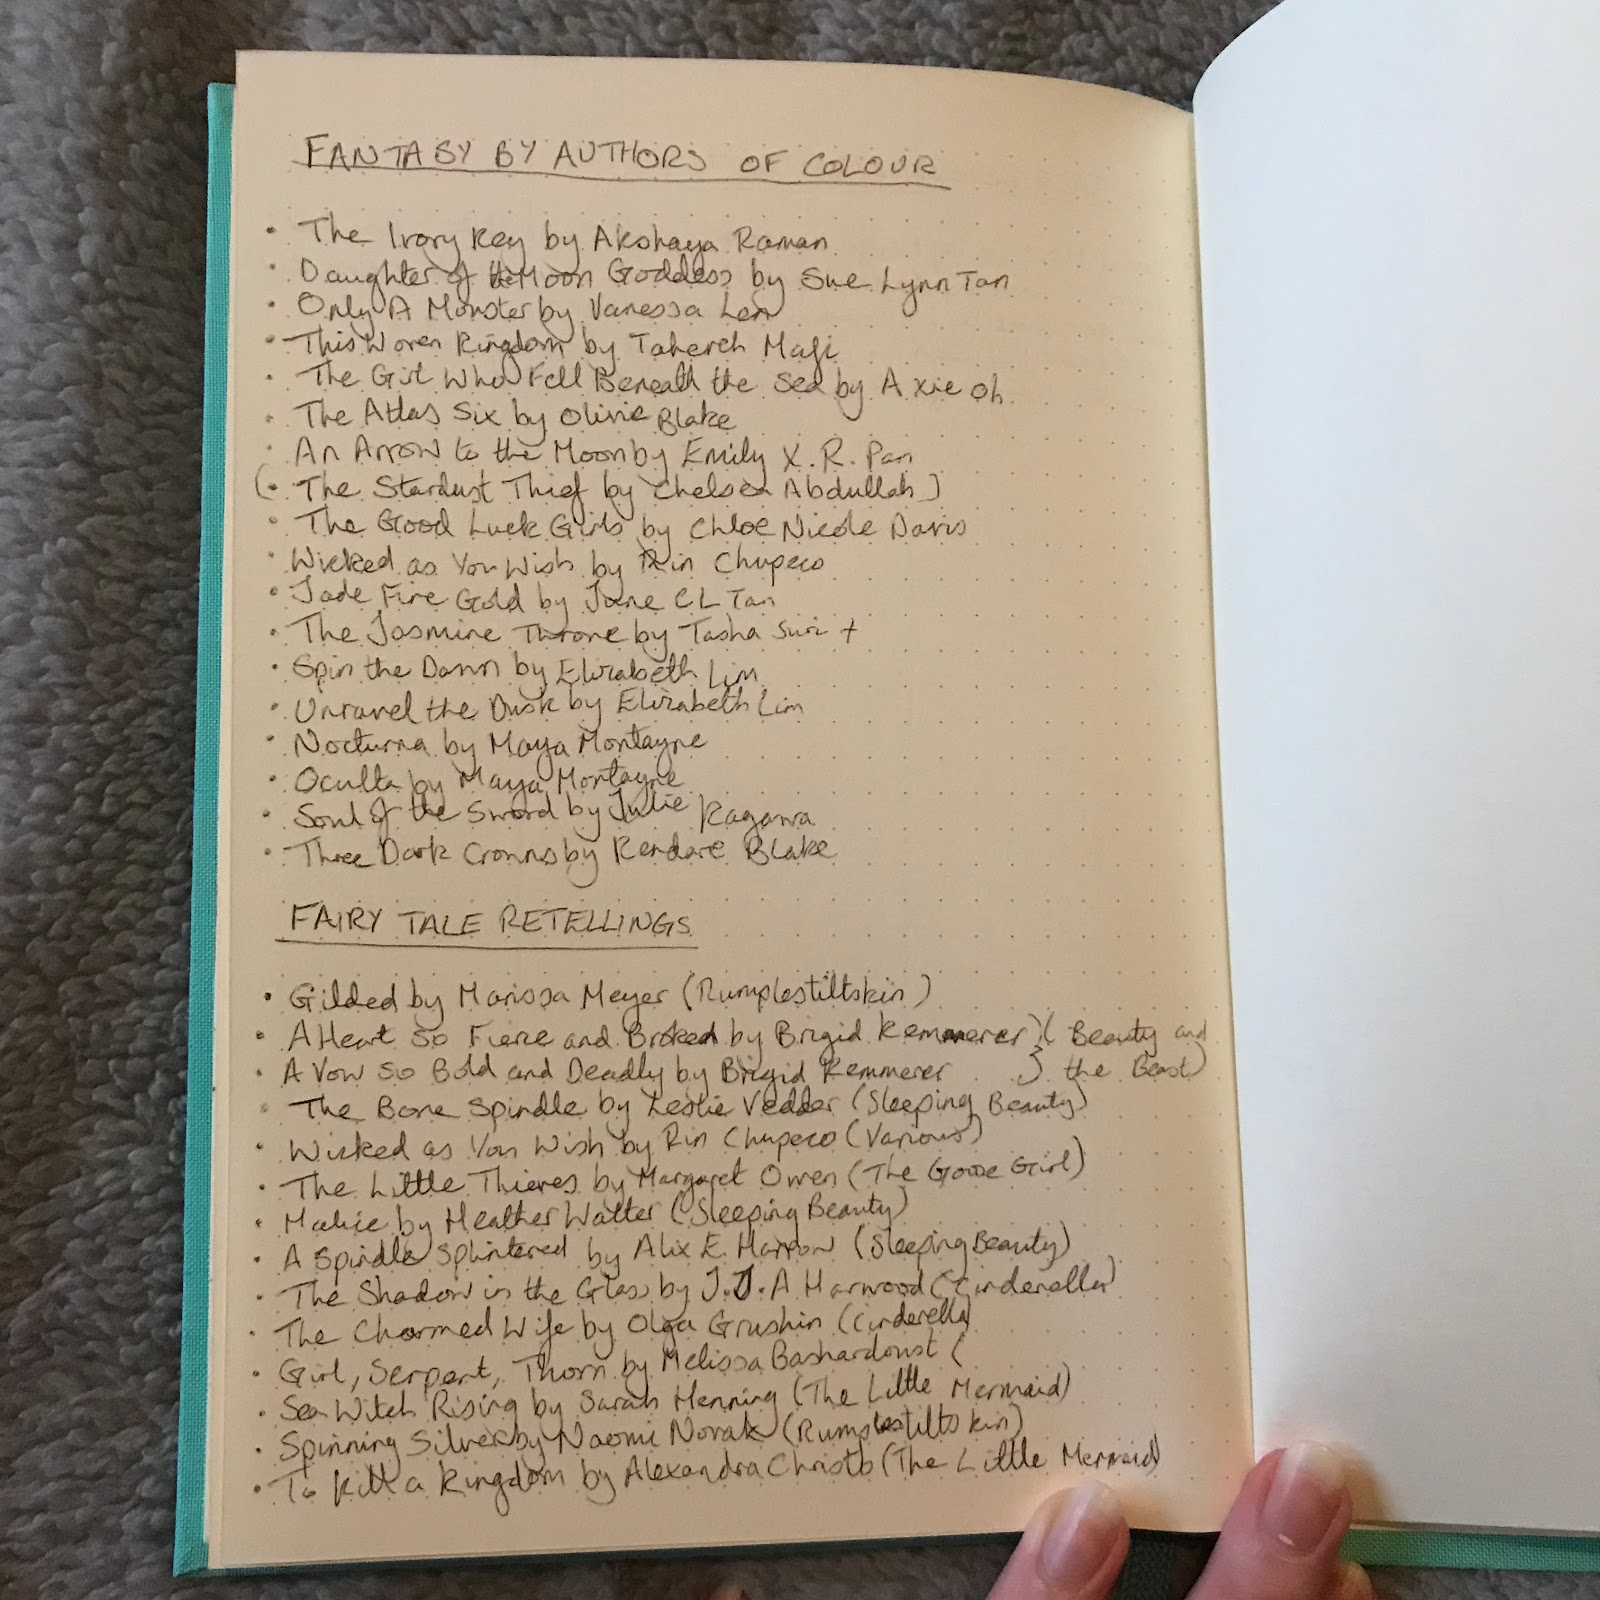 FANTASY BY AUTHORS OF COLOUR
• The Ivory Key by Akshaya Raman
• Daughter of the Moon Goddess by Sue Lynn Tan
• Only A Monster by Vanessa Len
• This Woven Kingdom by Tahereh Mafi
• The Girl Who Fell Beneath the Sea by Axie Oh
• The Atlas Six by Olivie Blake
• An Arrow to the Moon by Emily X. R. Pan
(• The Stardust Thief by Chelsea Abdullah)
• The Good Luck Girls by Chloe Nicole Davis
• Wicked as You Wish by Rin Chupeco
• Jade Fire Gold by June CL Tan
• The Jasmine Throne by Tasha Suri +
• Spin the Dawn by Elizabeth Lim
• Unravel the Dusk by Elizabeth Lim
• Nocturna by Maya Montayne
• Oculta by Maya Montayne
• Soul of the Sword by Julie Kagawa
• Three Dark Crowns by Kendare Blake
FAIRY TALE RETELLINGS
• Gilded by Marissa Meyer (Rumplestiltskin)
• A Heart So Fierce and Broken by Brigid Kemmerer } (Beauty and
• A Vow So Bold and Deadly by Brigid Kemmerer } the Beast)
• The Bone Spindle by Leslie Vedder (Sleeping Beauty)
• Wicked as You Wish by Rin Chupeco (Various)
• The Little Thieves by Margaret Owen (The Goose Girl)
• Malice by Heather Walter (Sleeping Beauty)
• A Spindle Splintered by Alix E. Harrow (Sleeping Beauty)
• The Shadow in the Glass by J.J.A Harwood (Cinderella)
• The Charmed Wife by Olga Grushin (Cinderella)
• Girl, Serpent, Thorn by Melissa Bashardoust (
• Sea Witch Rising by Sarah Henning (The Little Mermaid)
• Spinning Silver by Naomi Novak (Rumplestiltskin)
• To Kill a Kingdom by Alexandra Christo (The Little Mermaid)